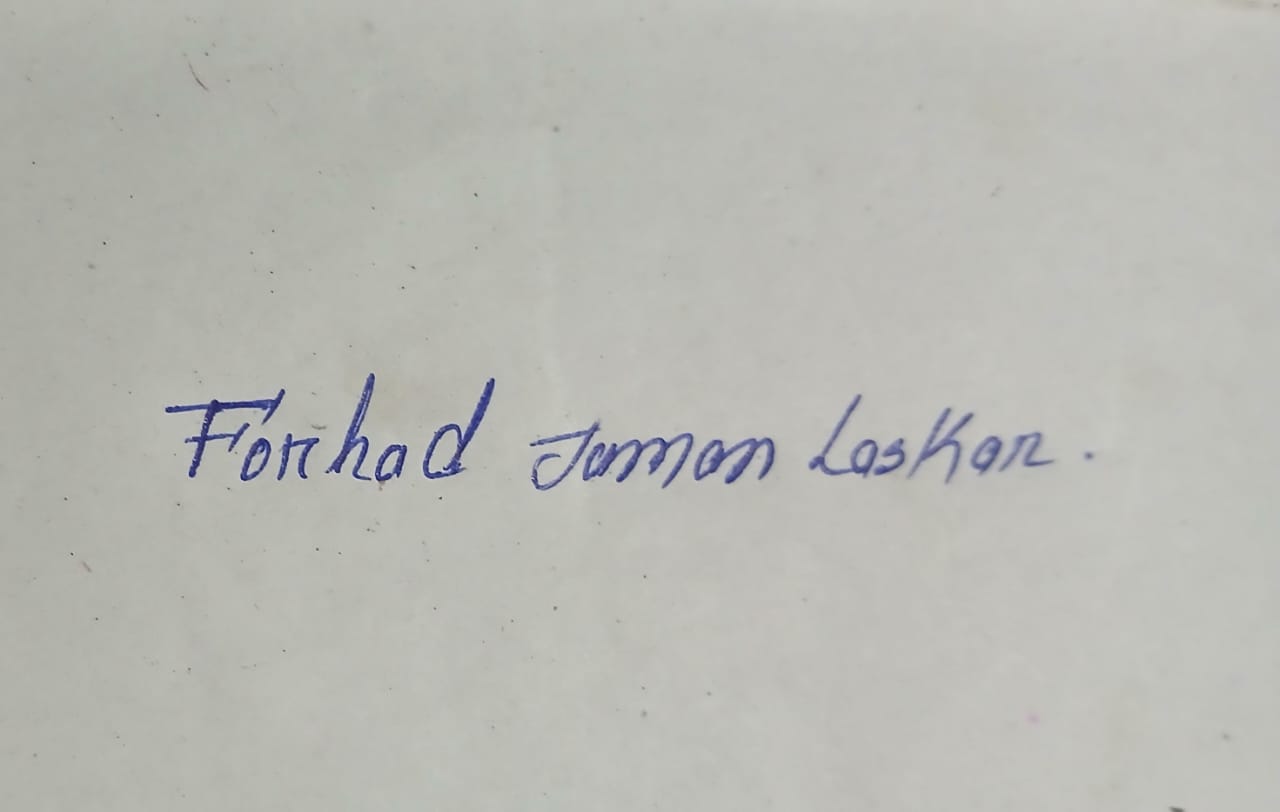 Forhad Jaman Laskar.